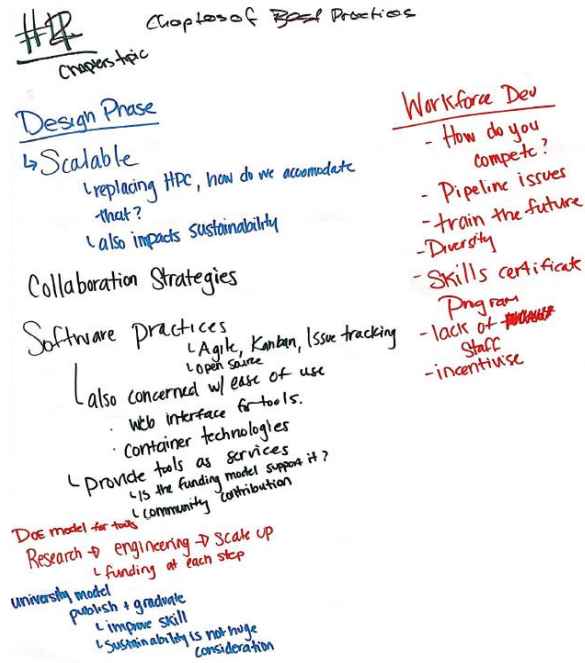 #2
Chapters of Best Practices
Chapters topic
Design Phase
↳ Scalable
↳ replacing HPC, how do we accomodate
that?
↳ also impacts sustainability
Collaboration Strategies
Software practices
↳ Agile, Kanban, Issue tracking
↳ open source
↳ also concerned w/ ease of use
· Web interface for tools.
· Container technologies
↳ Provide tools as services
↳ Is the funding model support it?
↳ Community contribution
DOE model for tools
Research → engineering → Scale up
↳ funding at each step
university model
publish + graduate
↳ improve skill
↳ Sustainability is not huge
consideration
Workforce Dev
- How do you
compete?
- Pipeline issues
- train the future
- Diversity
- Skills certificate
Program
- lack of
Staff
- incentivise